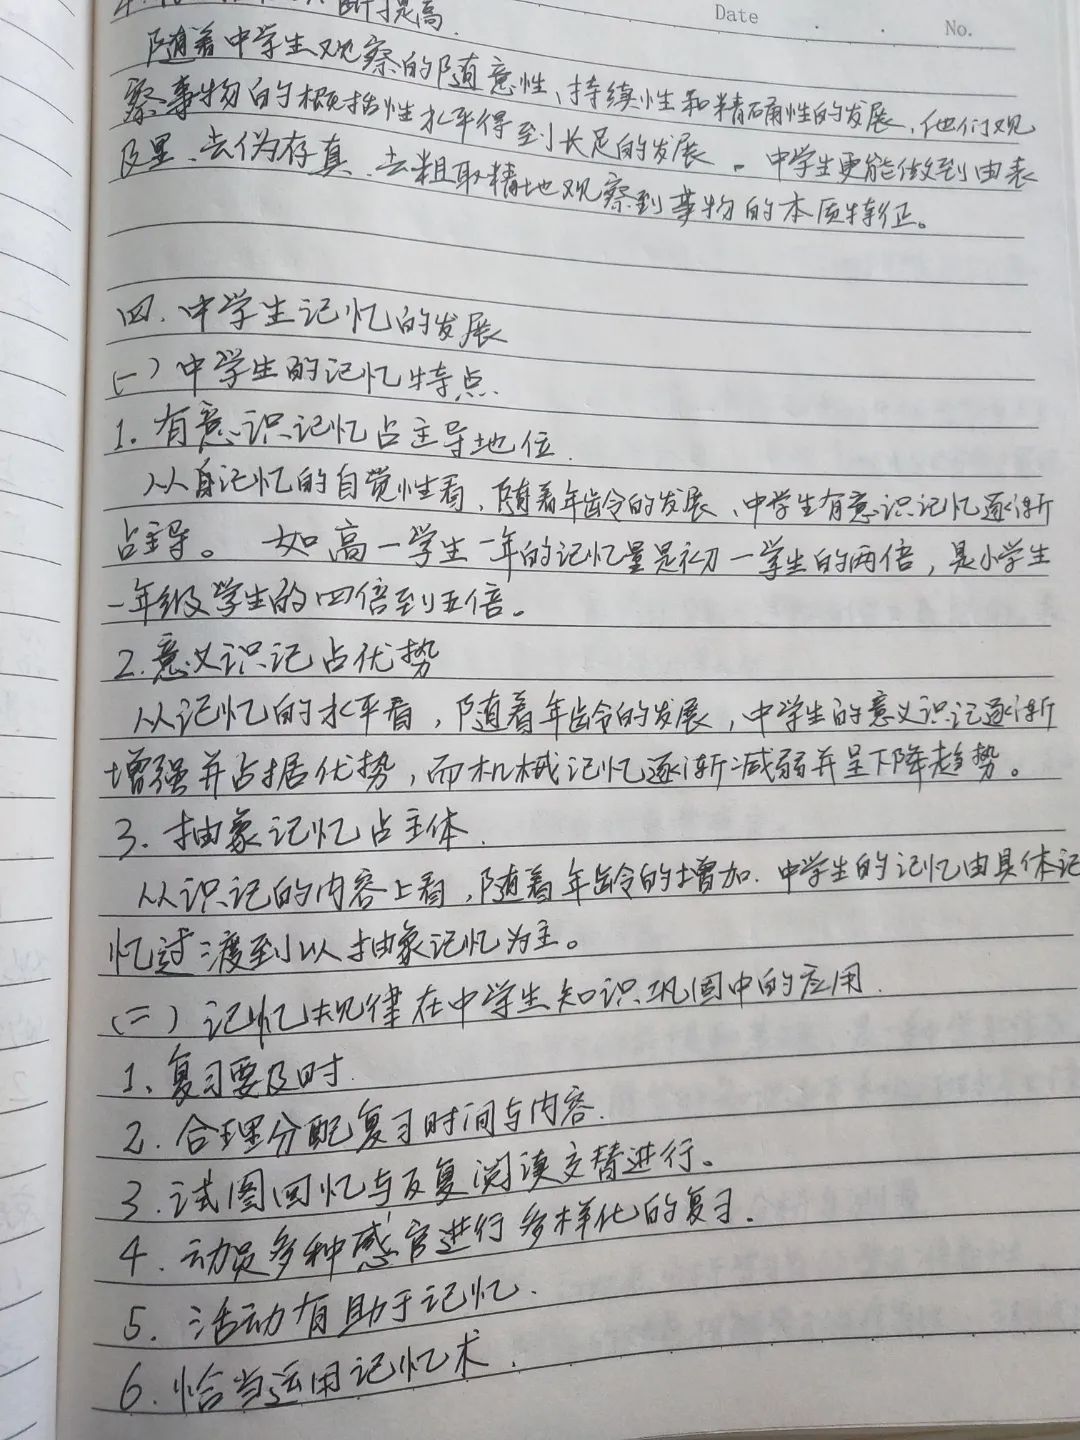 断提高.
Date . . No.
随着中学生观察的随意性、持续性和精确性的发展,他们观
察事物的概括性水平得到长足的发展。中学生更能做到由表
及里、去伪存真、去粗取精地观察到事物的本质特征。
四、中学生记忆的发展
(一)中学生的记忆特点.
1.有意识记忆占主导地位.
从自记忆的自觉性看,随着年龄的发展、中学生有意识记忆逐渐
占主导。如高一学生一年的记忆量是初一学生的两倍,是小学生
一年级学生的四倍到五倍。
2.意义识记占优势
从记忆的水平看,随着年龄的发展,中学生的意义识记逐渐
增强并占据优势,而机械记忆逐渐减弱并呈下降趋势。
3.抽象记忆占主体.
从识记的内容上看,随着年龄的增加.中学生的记忆由具体记
忆过渡到以抽象记忆为主。
(二)记忆规律在中学生知识巩固中的应用.
1、复习要及时.
2.合理分配复习时间与内容.
3.试图回忆与反复阅读交替进行。
4.动员多种感官进行多样化的复习.
5.活动有助于记忆.
6.恰当运用记忆术.